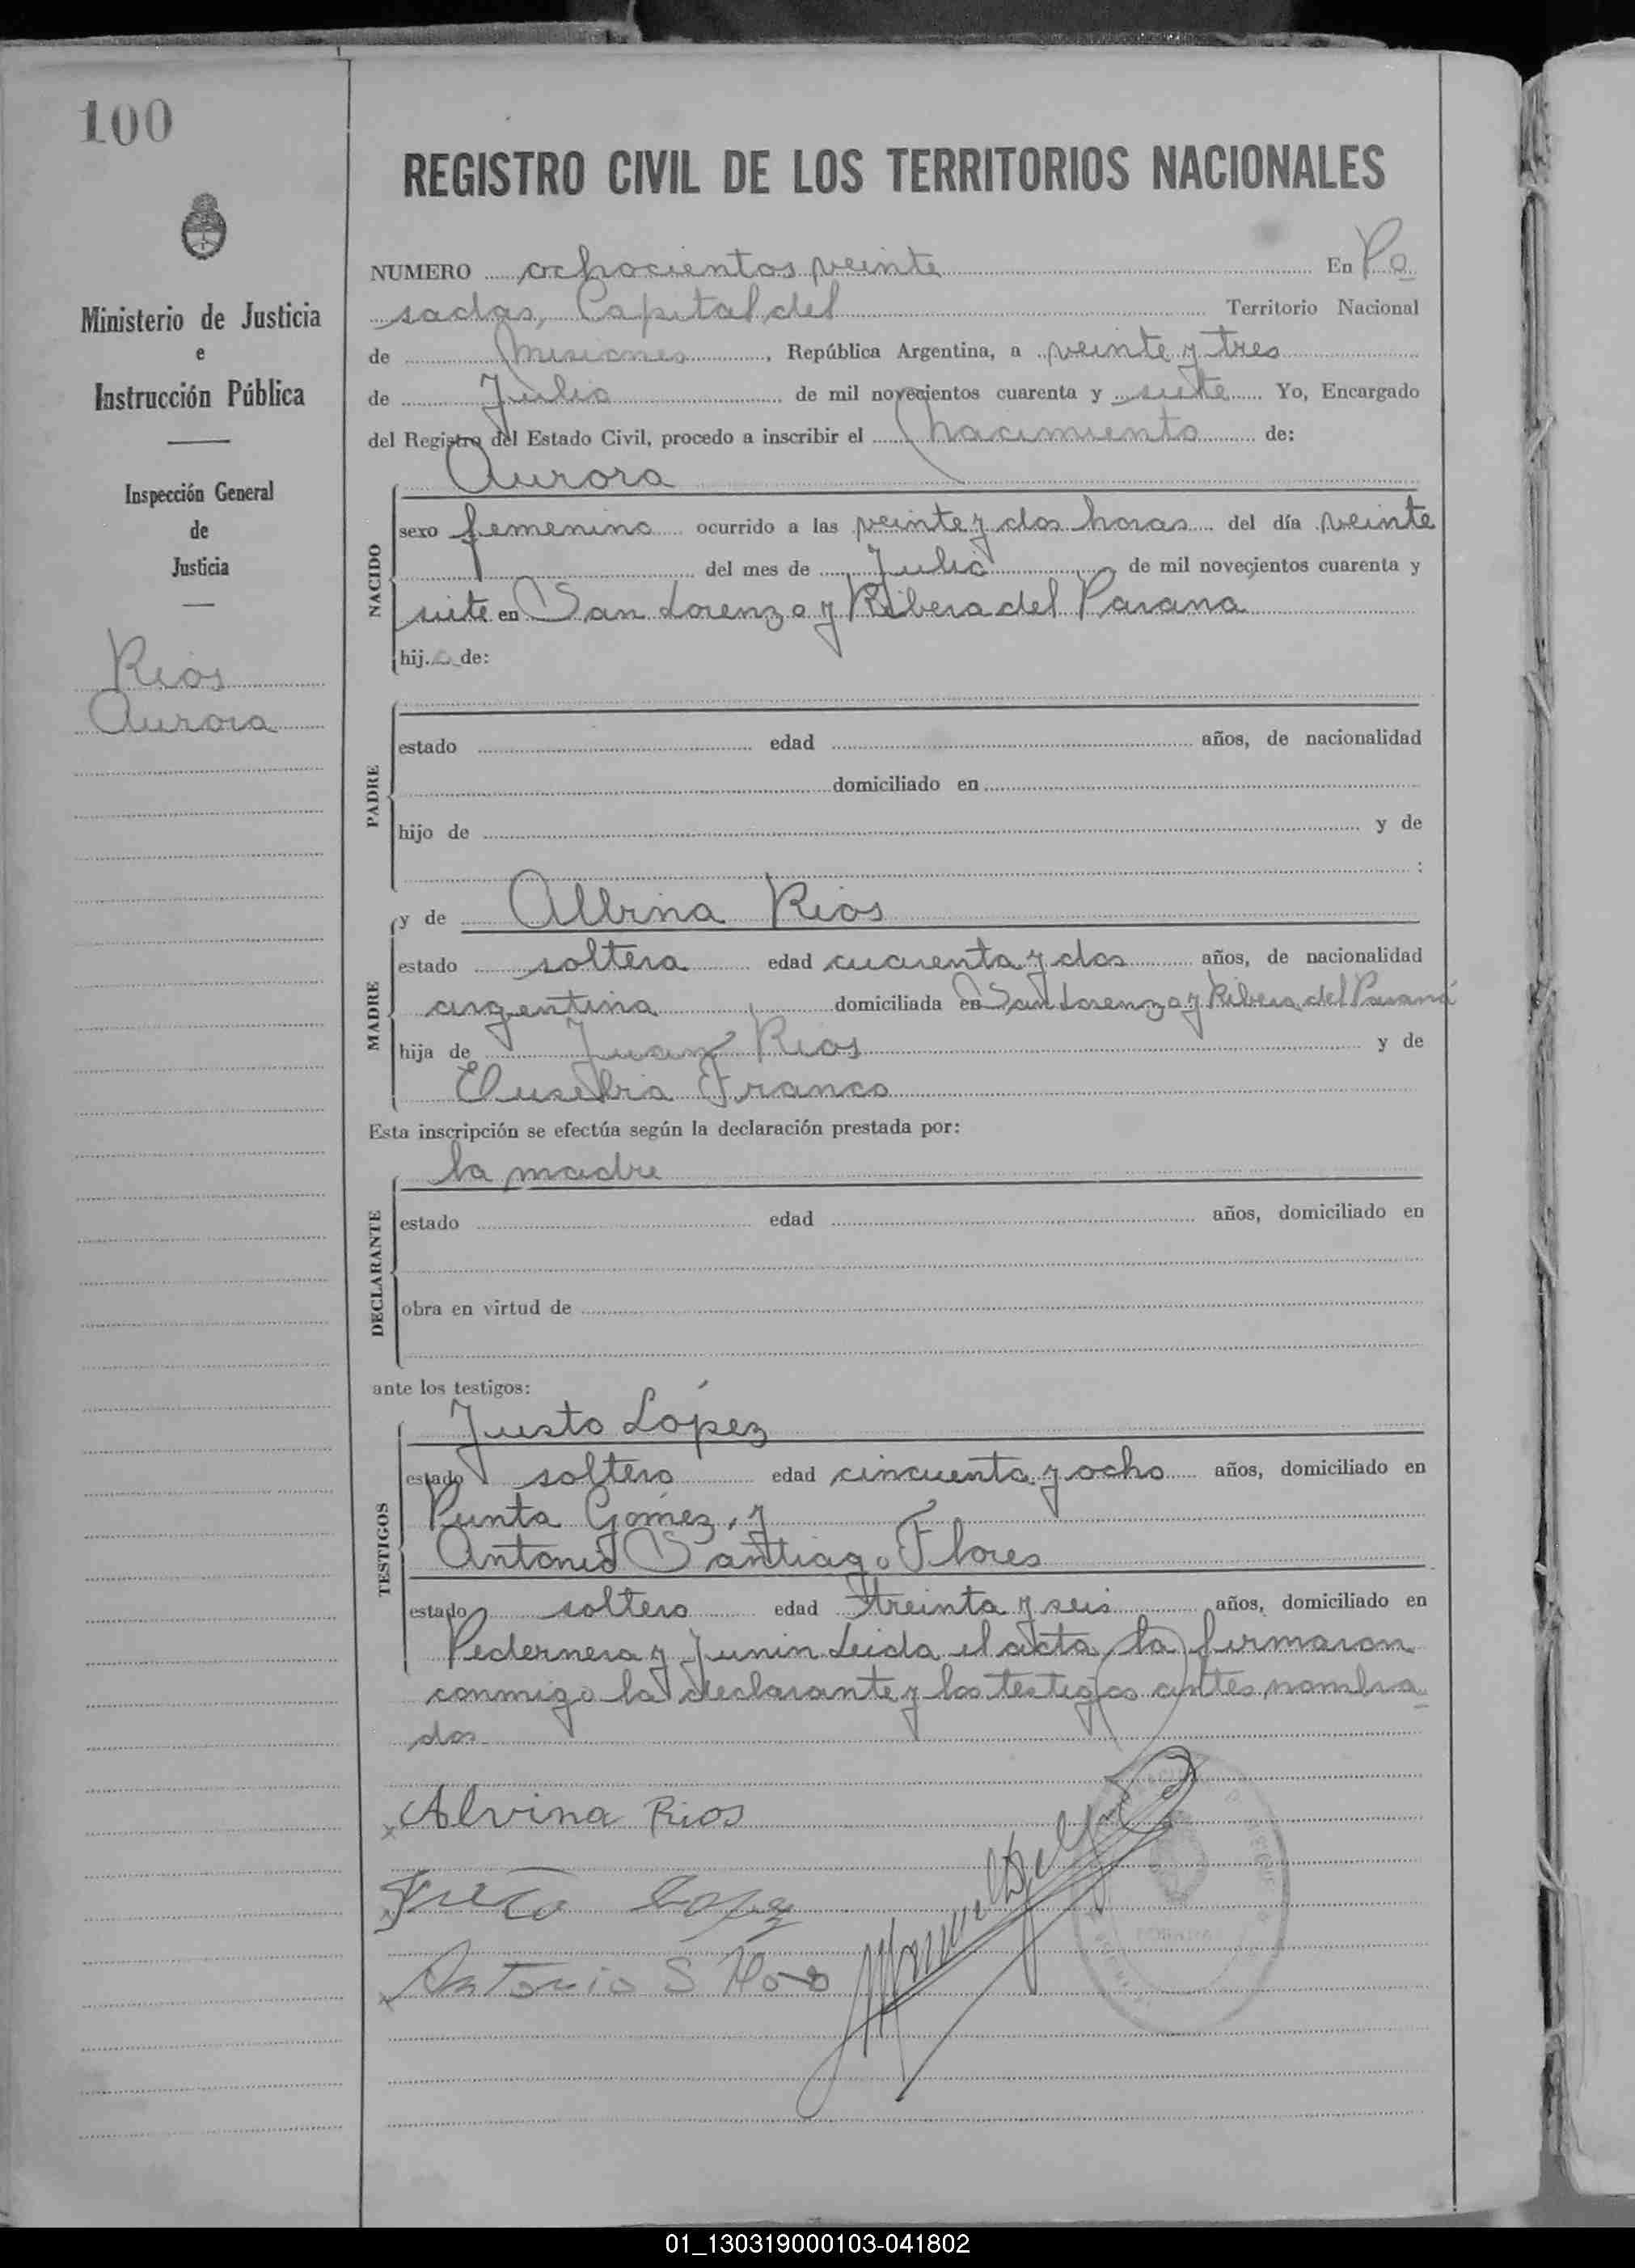 100
REGISTRO CIVIL DE LOS TERRITORIOS NACIONALES
Ministerio de Justicia
e
Instrucción Pública
Inspección General
de
Justicia
Rios
Aurora
NUMERO ochocientos veinte En Po
sadas, Capital del Territorio Nacional
de Misiones, República Argentina, a veinte y tres
de Julio de mil novecientos cuarenta y siete Yo, Encargado
del Registro del Estado Civil, procedo a inscribir el nacimiento de:
Aurora
NACIDO
sexo femenino ocurrido a las veinte y dos horas del día veinte
del mes de Julio de mil novecientos cuarenta y
siete en San Lorenzo y Ribera del Parana
hija de:
PADRE
estado edad años, de nacionalidad
domiciliado en
hijo de y de
:
MADRE
y de Albina Rios
estado soltera edad cuarenta y dos años, de nacionalidad
argentina domiciliada en San Lorenzo y Ribera del Paraná
hija de Juan Rios y de
Eusebia Franco
Esta inscripción se efectúa según la declaración prestada por:
la madre
DECLARANTE
estado edad años, domiciliado en
obra en virtud de
ante los testigos:
TESTIGOS
Justo López
estado soltero edad cincuenta y ocho años, domiciliado en
Punta Gómez, y
Antonio Santiago Flores
estado soltero edad treinta y seis años, domiciliado en
Pedernera y Junin Leida el acta, la firmaron
conmigo la declarante y los testigos antes nombra
dos
Alvina Rios
Justo Lopez
Antonio S
01_130319000103-041802